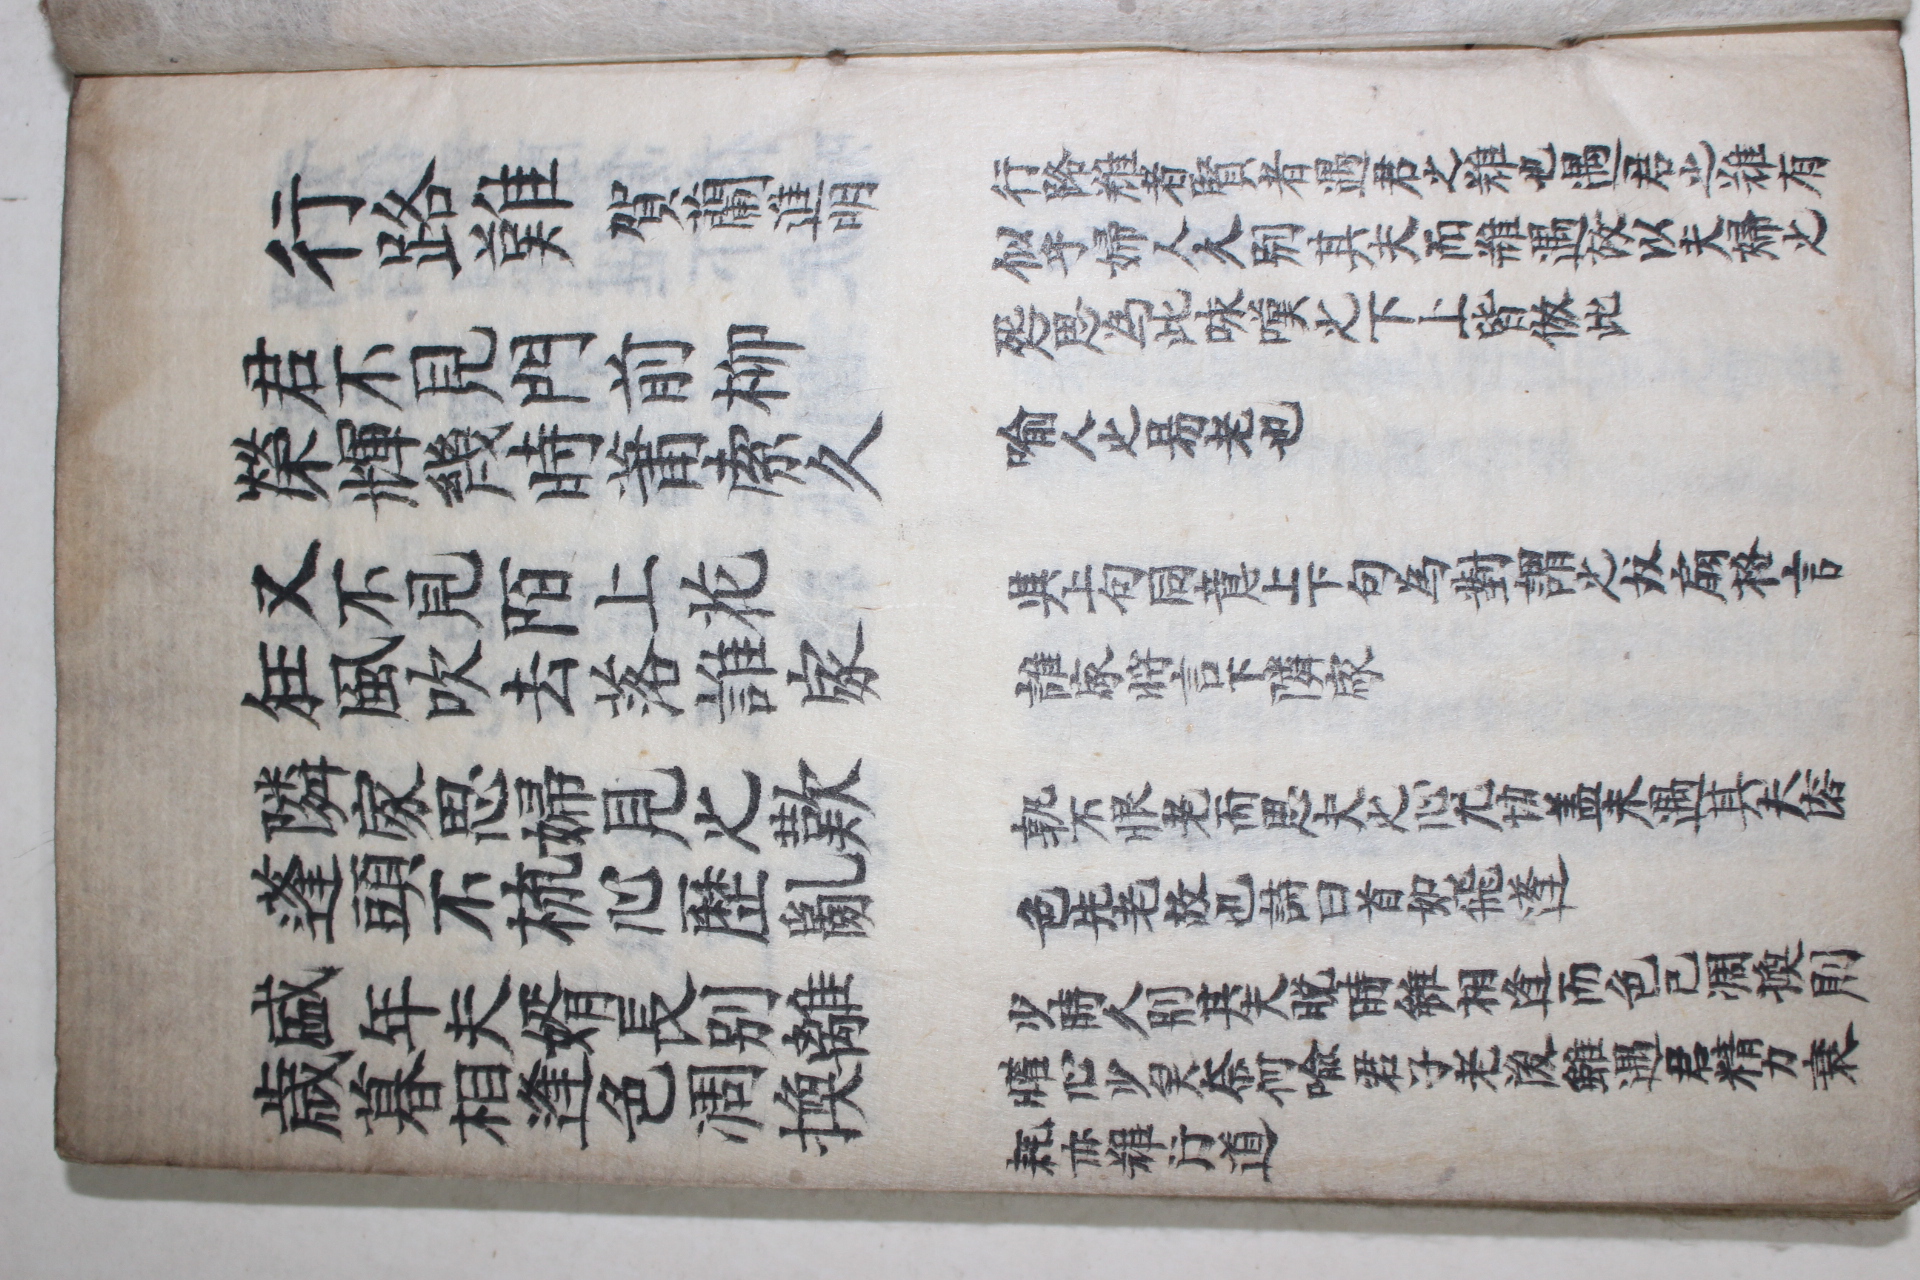 行路難 賀蘭進明
君不見門前柳
榮輝幾時蕭索久
又不見陌上花
狂風吹去落誰家
隣家思婦見之歎
蓬頭不梳心歷亂
盛年夫婿長別離
歲暮相逢色凋換
行路難者賢者遇君之難也遇君之難有
似乎婦人久別其夫而難遇故以夫婦之
怨思爲比咏嘆之下上皆倣此
喻人之易老也
與上句同意上下句爲對謂之扇格言
誰家將言下隣家
孰不恨老而思夫之心尤切盖未遇其夫
色先老故也詩曰首如飛蓬
少時久別其夫晚時雖相逢而色已凋換則
心少矣奈何喻君子老後雖遇君精力衰
耗亦難行道